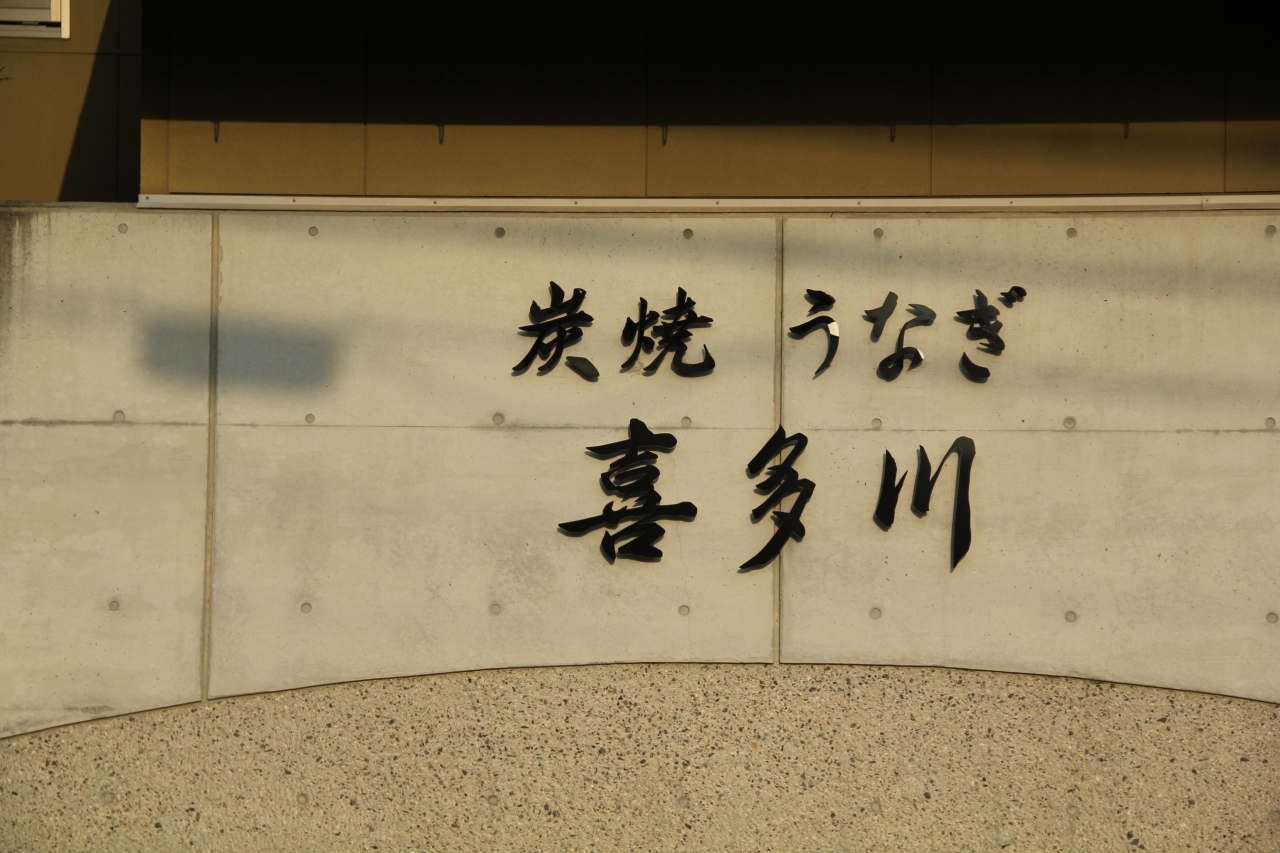 炭焼 うなぎ
喜多川